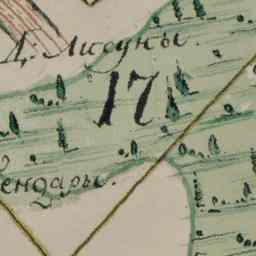 Д: Лисуны.
17
ендары.